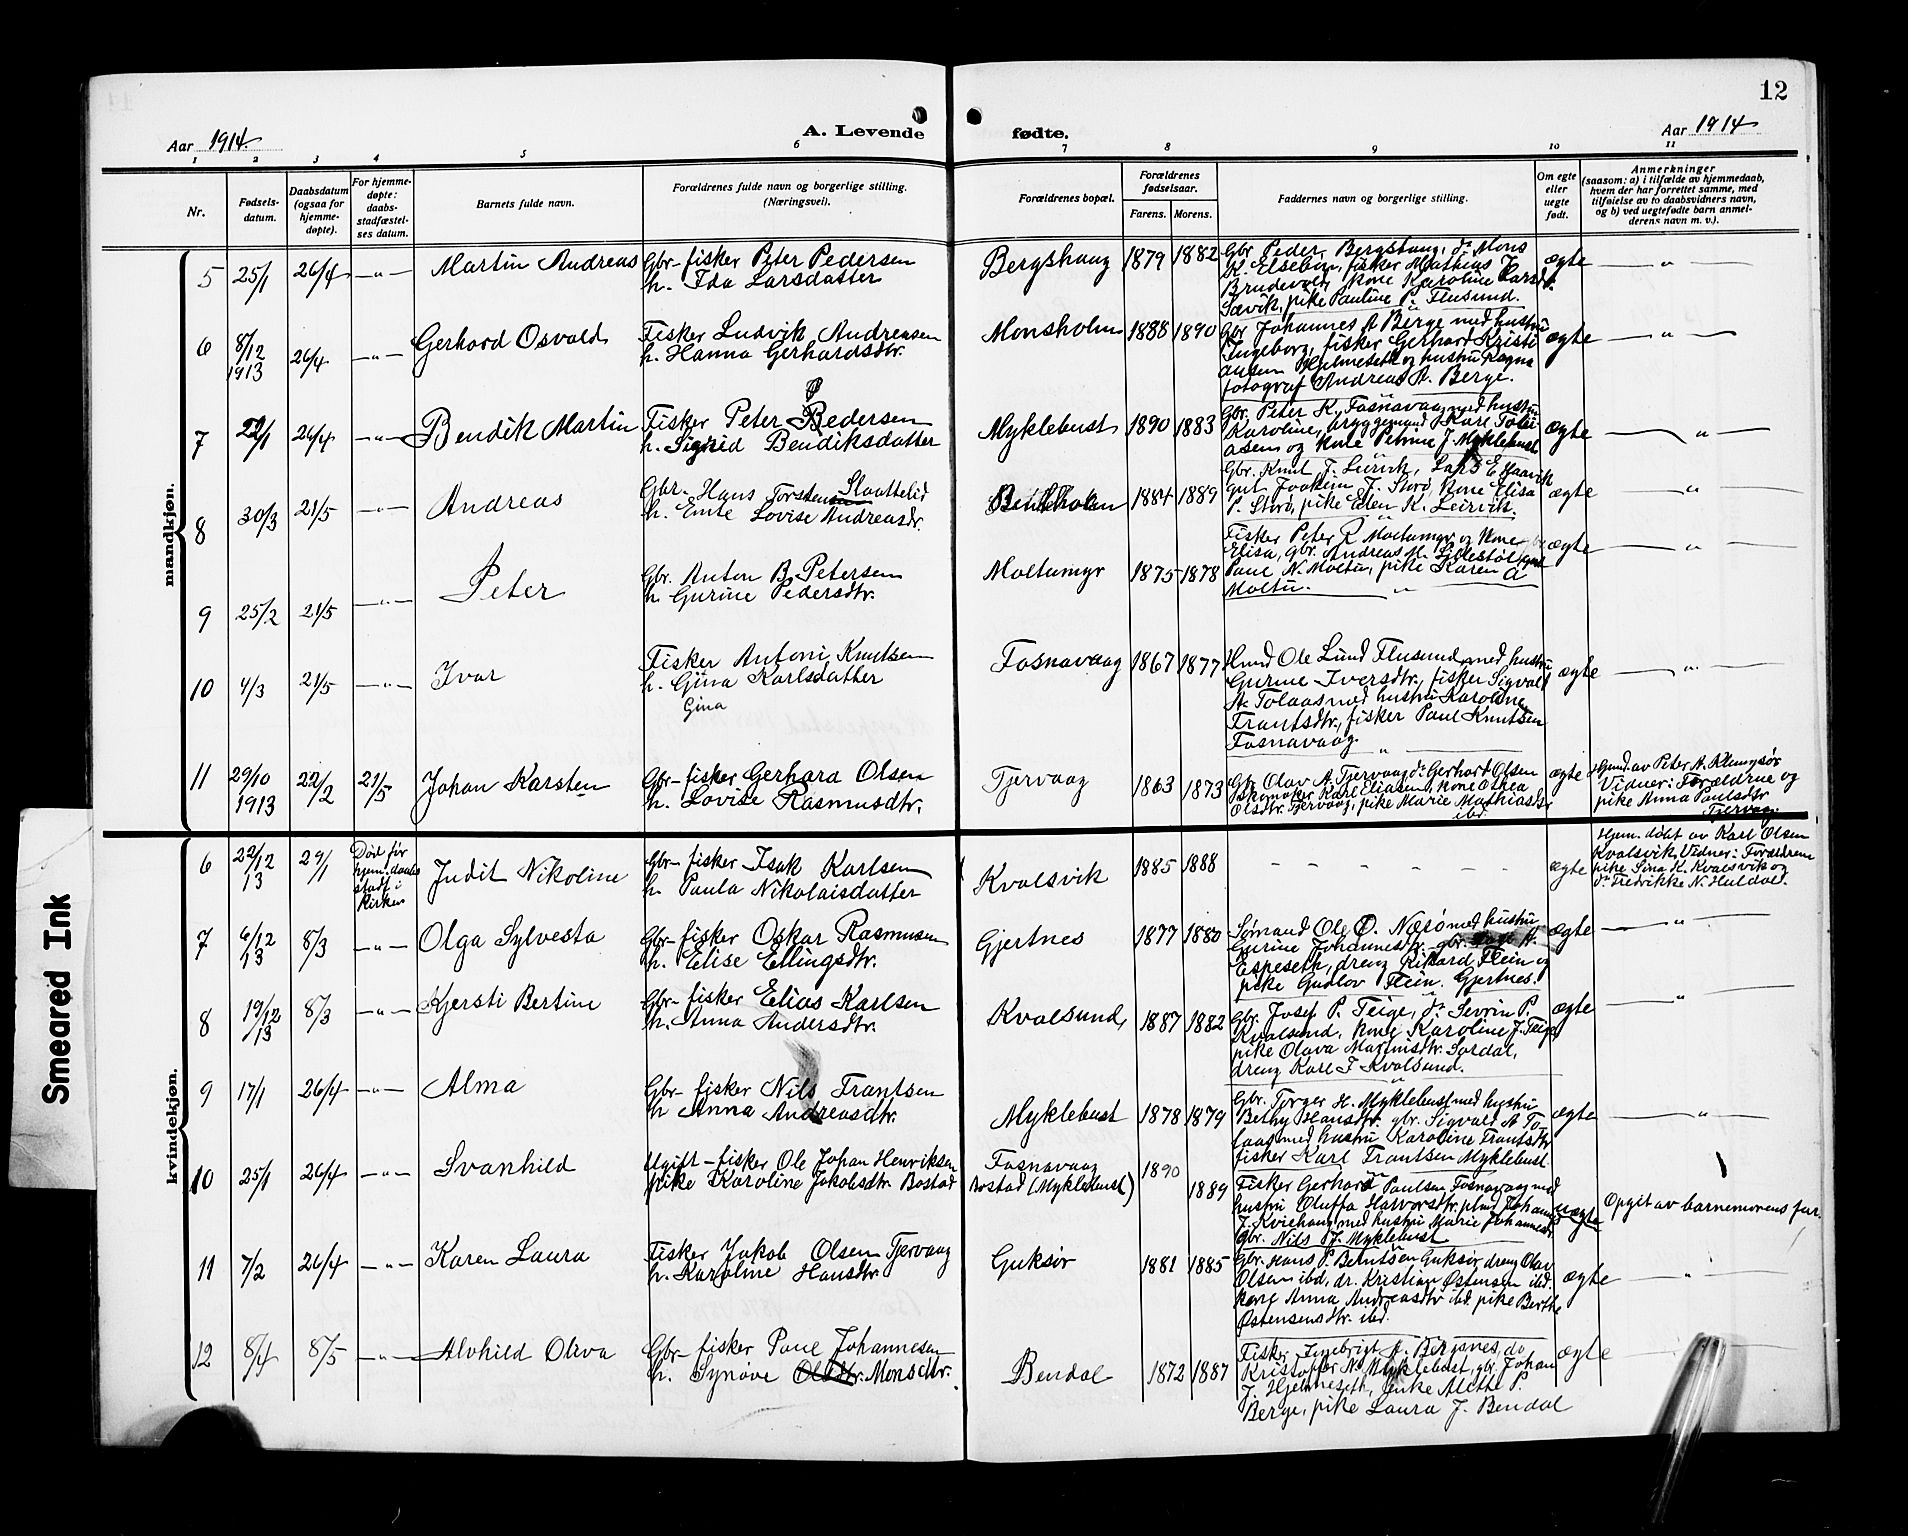 12
Aar 1914
A. Levende fødte.
Aar 1914
1 2 3 4 5 6 7 8 9 10 11
Nr.
Fødsels-
datum.
Daabsdatum
(ogsaa for
hjemme-
døpte).
For hjemme-
døpte:
daabs-
stadfæstel-
ses datum.
Barnets fulde navn.
Forældrenes fulde navn og borgerlige stilling.
(Næringsvei).
Forældrenes bopæl.
Forældrenes
fødselsaar.
Farens. Morens.
Faddernes navn og borgerlige stilling.
Om egte
eller
uegte
født.
Anmerkninger
(saasom: a) i tilfælde av hjemmedaab,
hvem der har forrettet samme, med
tilføielse av to daabsvidners navn,
og b) ved uegtefødte barn anmel-
derens navn m. v.).
mandkjøn.
5 25/1 26/4 -"- Martin Andreas
Gbr- fisker Peter Pedersen
h. Ida Larsdatter
Bergshaug 1879 1882
Gbr. Peder Bergshaug, do Mons
K. Elsebøn, fisker Mathias J.
Brudevolt, kone Karoline Larsdt.
Sævik, pike Pauline P. Flusund.
ægte -"-
6 8/12 1913 26/4 -"- Gerhard Osvald
Fisker Ludvik Andreasen
h. Hanna Gerhardsdtr.
Monsholm 1888 1890
Gbr Johannes A Berge med hustru
Ingeborg, fisker Gerhard Kristi
ansen Hjelmeseth og hustru Ragna
fotograf Andreas A. Berge.
ægte -"-
7 22/1 26/4 -"- Bendik Martin
P
Fisker Peter Bedersen
h. Sigrid Bendiksdatter
Myklebust 1890 1883
Gbr. Peter K. Fosnavaag med hustru
Karoline, bryggemand Karl Tobi
asen og kone Petrine J. Myklebust
ægte -"-
8 30/3 21/5 -"- Andreas
Gbr. Hans Torstensen Slaattelid
h. Emte Lovise Andreasdr.
1884 1889
Gbr. Knut T. Leirvik, Lars E Haavik
gut Joakim J. Storø, kone Elisa
P. Storø, pike Elen K. Leirvik.
ægte -"-
9 25/2 21/5 -"- Peter
Gbr. Anton B. Petersen
h. Gurine Pedersdtr.
Moltumyr 1875 1878
Fisker Peter R Moltumyr og kone
Elisa, gbr. Andreas M.
Paul N. Moltu, pike Karen A
Moltu.
ægte -"-
10 4/3 21/5 -"- Ivar
Fisker Antoni Knutsen
h. Gina Karlsdatter
Gina
Fosnavaag 1867 1877
Hmd Ole Lund Flusund, med hustru
Gurine Iversdtr., fisker Sigvald
A. Tolaas med hustru Karoline
Frantsdtr., fisker Paul Knutsen
Fosnavaag.
ægte -"-
11 29/10 1913 22/2 21/5 Johan Karsten
Gbr- fisker Gerhard Olsen
h. Lovise Rasmusdtr.
Tjervaag 1863 1873
Gbr Olav A. Tjervaag do Gerhard Olsen
skomaker Karl Eliasen, kone Othea
Olsdtr. Tjervaag, pike Marie Mathiasdtr
ibd.
ægte
Hjmd. av Peter A. Klungsør
Vidner: Forældrene og
pike Anna Paulsdtr
Tjervaag.
kvindekjøn.
6 22/12 13 29/1
Død før
hjem.daabs
stadf i
kirken
Judit Nikoline
Gbr- fisker Isak Karlsen
h. Paula Nikolaisdatter
Kvalsvik 1885 1888
- - - - - -
ægte
Hjem. døbt av Karl Olsen
Kvalsvik. Vidner: Forældrene
pike Sina K. Kvalsvik og
do Fredrikke N. Huldal.
7 6/12 13 8/3 -"- Olga Sylvesta
Gbr- fisker Oskar Rasmusen
h. Elise Ellingsdtr.
Gjertnes 1877 1880
Sømand Ole O. Nærø med hustru
Gurine Johannesdtr. gbr. A.
Espeseth, dreng Rikard Flein og
pike Gudlov Flein. Gjertnes.
ægte -"-
8 19/12 13 8/3 -"- Kjersti Bertine
Gbr- fisker Elias Karlsen
h. Anna Andersdtr.
Kvalsund, 1887 1882
Gbr. Josef P. Teige, do Sevrin P.
Kvalsund, kone Karoline J. Teige
pike Olava Martinsdtr. Sørdal,
dreng Karl J Kvalsund.
ægte -"-
9 17/1 26/4 -"- Alma
Gbr- fisker Nils Frantsen
h Anna Andreasdtr.
Myklebust 1878 1879
Gbr. Torger H. Myklebust med hustru
Bethy Hansdtr. gbr. Sigvald A To-
laas med hustru Karoline Frantsdtr
fisker Karl Frantsen Myklebust
ægte -"-
10 25/1 26/4 -"- Svanhild
Ugift- fisker Ole Johan Henriksen
pike Karoline Jakobsdtr. Bostad
Fosnavaag
Bostad (Myklebust)
1890 1889
Fisker Gerhard Paulsen Fosnavaag med
hustru Oluffa Halvorsdtr. plmd Johannes
J. Kviehaug med hustru Marie Johannesdtr
Gbr. Nils J. Myklebust
uægte
Opgit av barnemorens far.
11 7/2 26/4 -"- Karen Laura
Fisker Jakob Olsen Tjervaag
h. Karoline Hansdtr.
Guksør 1881 1885
Gbr. Hans P. Berntsen Guksør dreng Olav
Olsen ibd, dr. Kristian Østensen ibd.
kone Anna Andreasdtr ibd. pike Berthe
Østensensdtr. ibd.
ægte -"-
12 8/4 8/5 -"- Alvhild Oliva
Gbr- fisker Paul Johannesen
h. Synøve Olsdtr. Monsdtr.
Bendal 1872 1887
Fisker Ingebrigt A. Bergsnes, do
Kristoffer N. Myklebust, gbr. Johan
J. Hjelmeseth, enke Alette P.
Berge, pike Laura J. Bendal
ægte
Smeared Ink